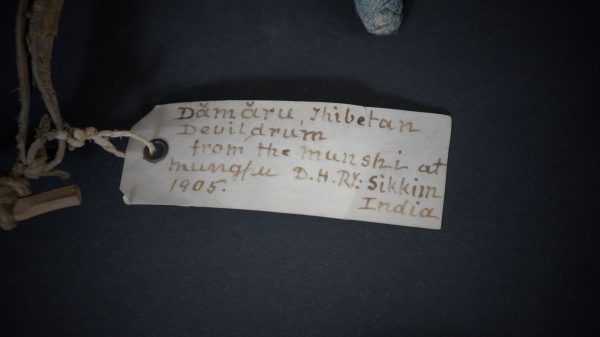 Dămăru, Thibetan
Devil drum
from the munshi at
mungpu D.H.Ry. Sikkim
1905.
India